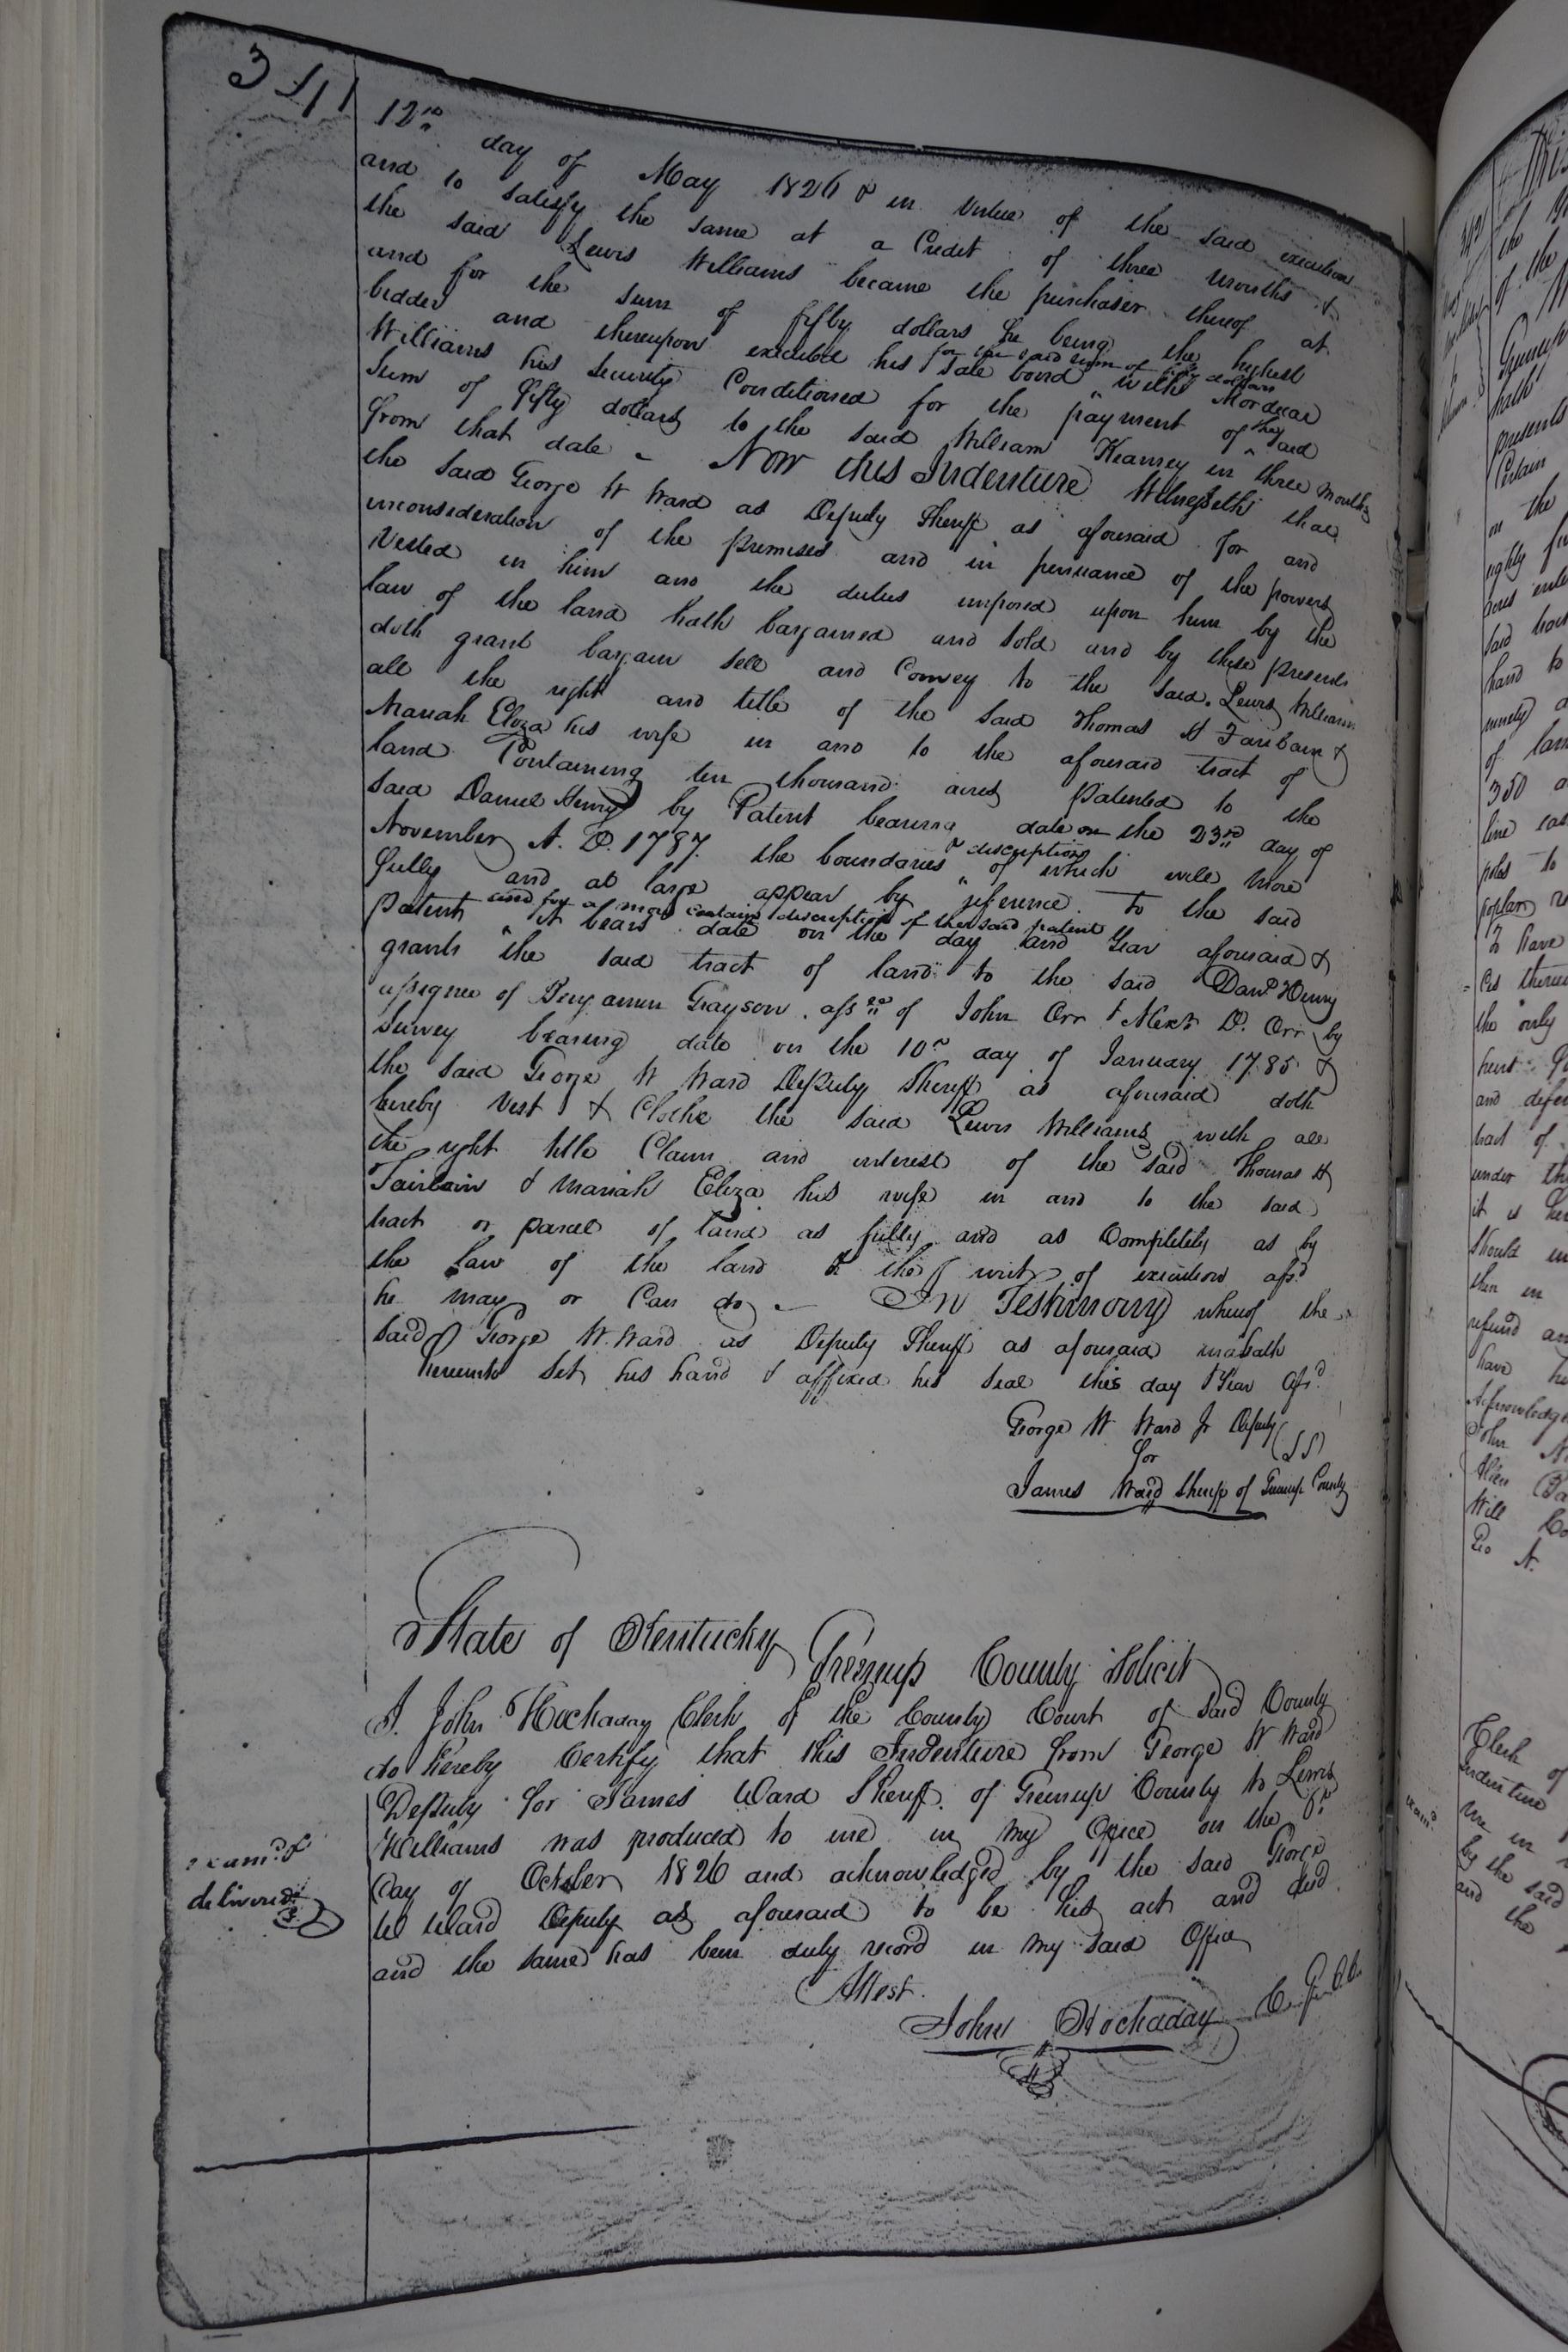 341
12th day of May 1826 & in virtue of the said execution
and to satisfy the same at a Credit of three months &
the said Lewis Williams became the purchaser thereof at
and for the sum of fifty dollars he being the highest
bidder and thereupon executed his sale bond with Mordecai
for the said sum of fifty dollars
Williams his Security Conditioned for the payment of the said
Sum of fifty dollars to the said William Kearney in three months
from that date - Now this Indenture Witnesseth that
the said George W Ward as Deputy Sheriff as aforesaid for and
inconsideration of the premises and in persuance of the powers
Vested in him and the duties imposed upon him by the
law of the land hath bargained and sold and by these presents
doth grant bargain sell and Convey to the said Lewis Williams
all the right and title of the said Thomas H Fairbairn &
Mariah Eliza his wife in and to the aforesaid tract of
land Containing ten thousand acres patented to the
said Daniel Henry by Patent bearing date on the 23rd day of
November A. D. 1787. the boundaries & discription of which will more
fully and at large appear by reference to the said
patent and for a more certain discription of the said patent
it bears date on the day and Year aforesaid &
grants the said tract of land to the said Danl Henry
assignee of Benjamin Grayson assee of John Orr & Alexr D. Orr by
Survey bearing date on the 10th day of January 1785 &
the said George W Ward Deputy Sheriff as aforesaid doth
hereby Vest & Clothe the said Lewis Williams with all
the right title Claim and interest of the said Thomas H
Fairbairn & Mariah Eliza his wife in and to the said
tract or parcel of land as fully and as Completely as by
the law of the land & the writ of execution afsd
he may or Can do - In Testimony whereof the
said George W. Ward as Deputy Sheriff as aforesaid hath
hereunto set his hand & affixed his seal this day & Year afsd
George W Ward Jr Deputy (SS)
for
James Ward Sheriff of Greenup County
State of Kentucky
Greenup County Solicit
I. John Hockaday Clerk of the County Court of said County
do hereby Certify that this Indenture from George W Ward
Deputy for James Ward Sheriff of Greenup County to Lewis
Williams was produced to me in my Office on the
day of October 1826 and acknowledged by the said George
W Ward Deputy as aforesaid to be his act and deed
and the same has been duly record in my said Office
Attest.
John Hockaday
examd &
delivered